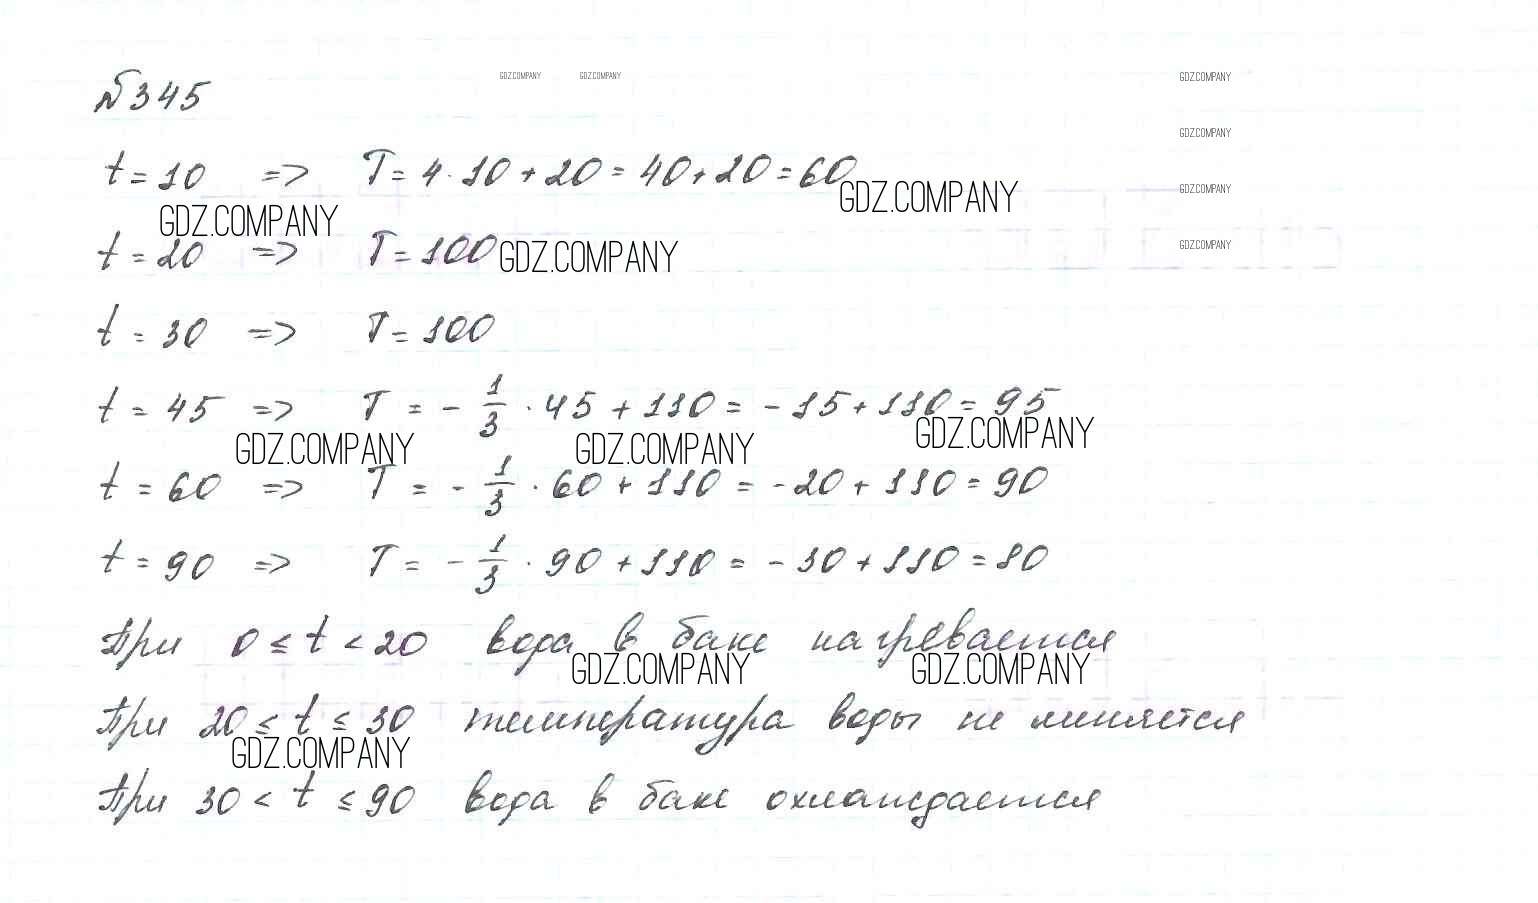 №345
GDZ.COMPANY GDZ.COMPANY GDZ.COMPANY
GDZ.COMPANY
t = 10 => T = 4 · 10 + 20 = 40 + 20 = 60
GDZ.COMPANY GDZ.COMPANY
GDZ.COMPANY
t = 20 => T = 100
GDZ.COMPANY GDZ.COMPANY
t = 30 => T = 100
t = 45 => T = - 1/3 · 45 + 110 = - 15 + 110 = 95
GDZ.COMPANY GDZ.COMPANY GDZ.COMPANY
t = 60 => T = - 1/3 · 60 + 110 = - 20 + 110 = 90
t = 90 => T = - 1/3 · 90 + 110 = - 30 + 110 = 80
При 0 ≤ t < 20 вода в баке нагревается
GDZ.COMPANY GDZ.COMPANY
При 20 ≤ t ≤ 30 температура воды не меняется
GDZ.COMPANY
При 30 < t ≤ 90 вода в баке охлаждается